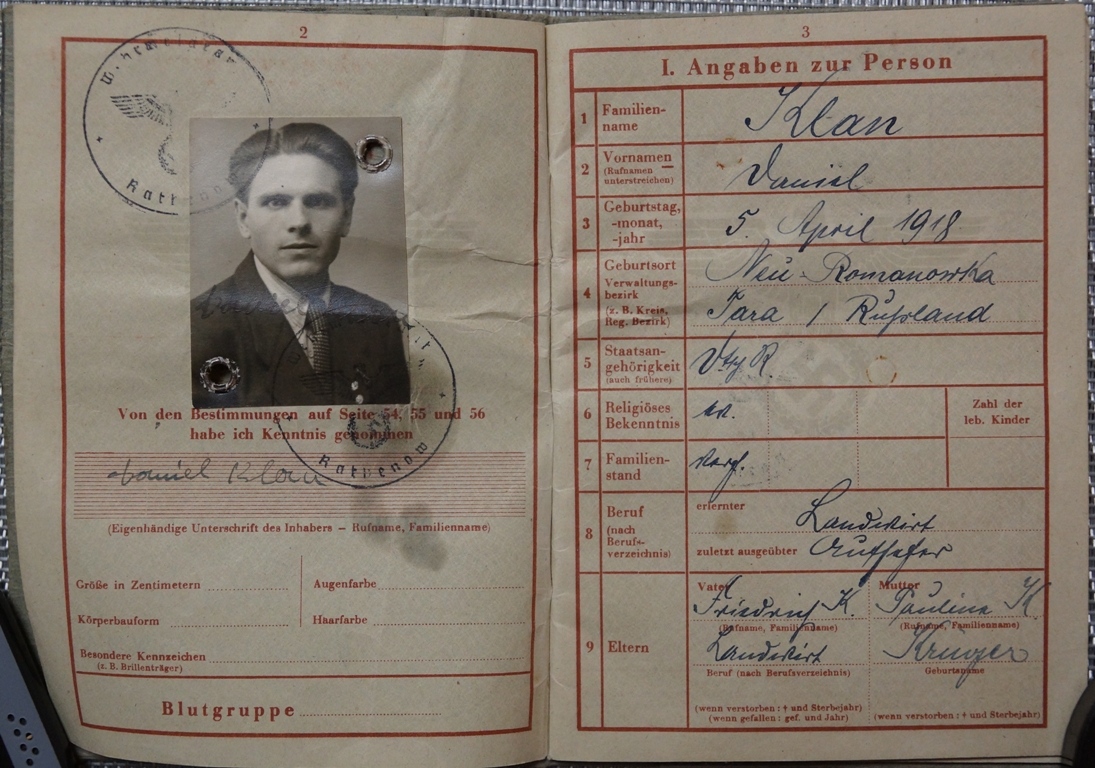 2
Wehrmeldeamt
Rathenow
Von den Bestimmungen auf Seite 54, 55 und 56
habe ich Kenntnis genommen
Rathenow
Daniel Klan
(Eigenhändige Unterschrift des Inhabers – Rufname, Familienname)
Größe in Zentimetern
Augenfarbe
Körperbauform
Haarfarbe
Besondere Kennzeichen
(z. B. Brillenträger)
Blutgruppe
3
I. Angaben zur Person
1 Familien-
name
Klan
2 Vornamen
(Rufnamen
unterstreichen)
Daniel
3 Geburtstag,
-monat,
-jahr
5. April 1918
4 Geburtsort
Verwaltungs-
bezirk
(z. B. Kreis,
Reg. Bezirk)
Neu-Romanowka
Tara / Rußland
5 Staatsan-
gehörigkeit
(auch frühere)
R.
6 Religiöses
Bekenntnis
ev.
Zahl der
leb. Kinder
7 Familien-
stand
8 Beruf
(nach
Berufs-
verzeichnis)
erlernter
Landwirt
zuletzt ausgeübter
9 Eltern
Vater
Friedrich K.
(Rufname, Familienname)
Landwirt
Beruf (nach Berufsverzeichnis)
(wenn verstorben: † und Sterbejahr)
(wenn gefallen: gef. und Jahr)
Mutter
Pauline K
(Rufname, Familienname)
Krüger
Geburtsname
(wenn verstorben: † und Sterbejahr)